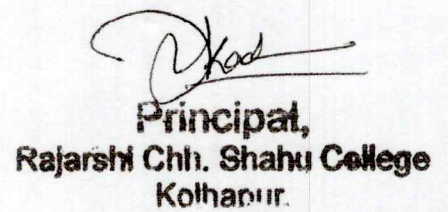 Principal,
Rajarshi Chh. Shahu College
Kolhapur.